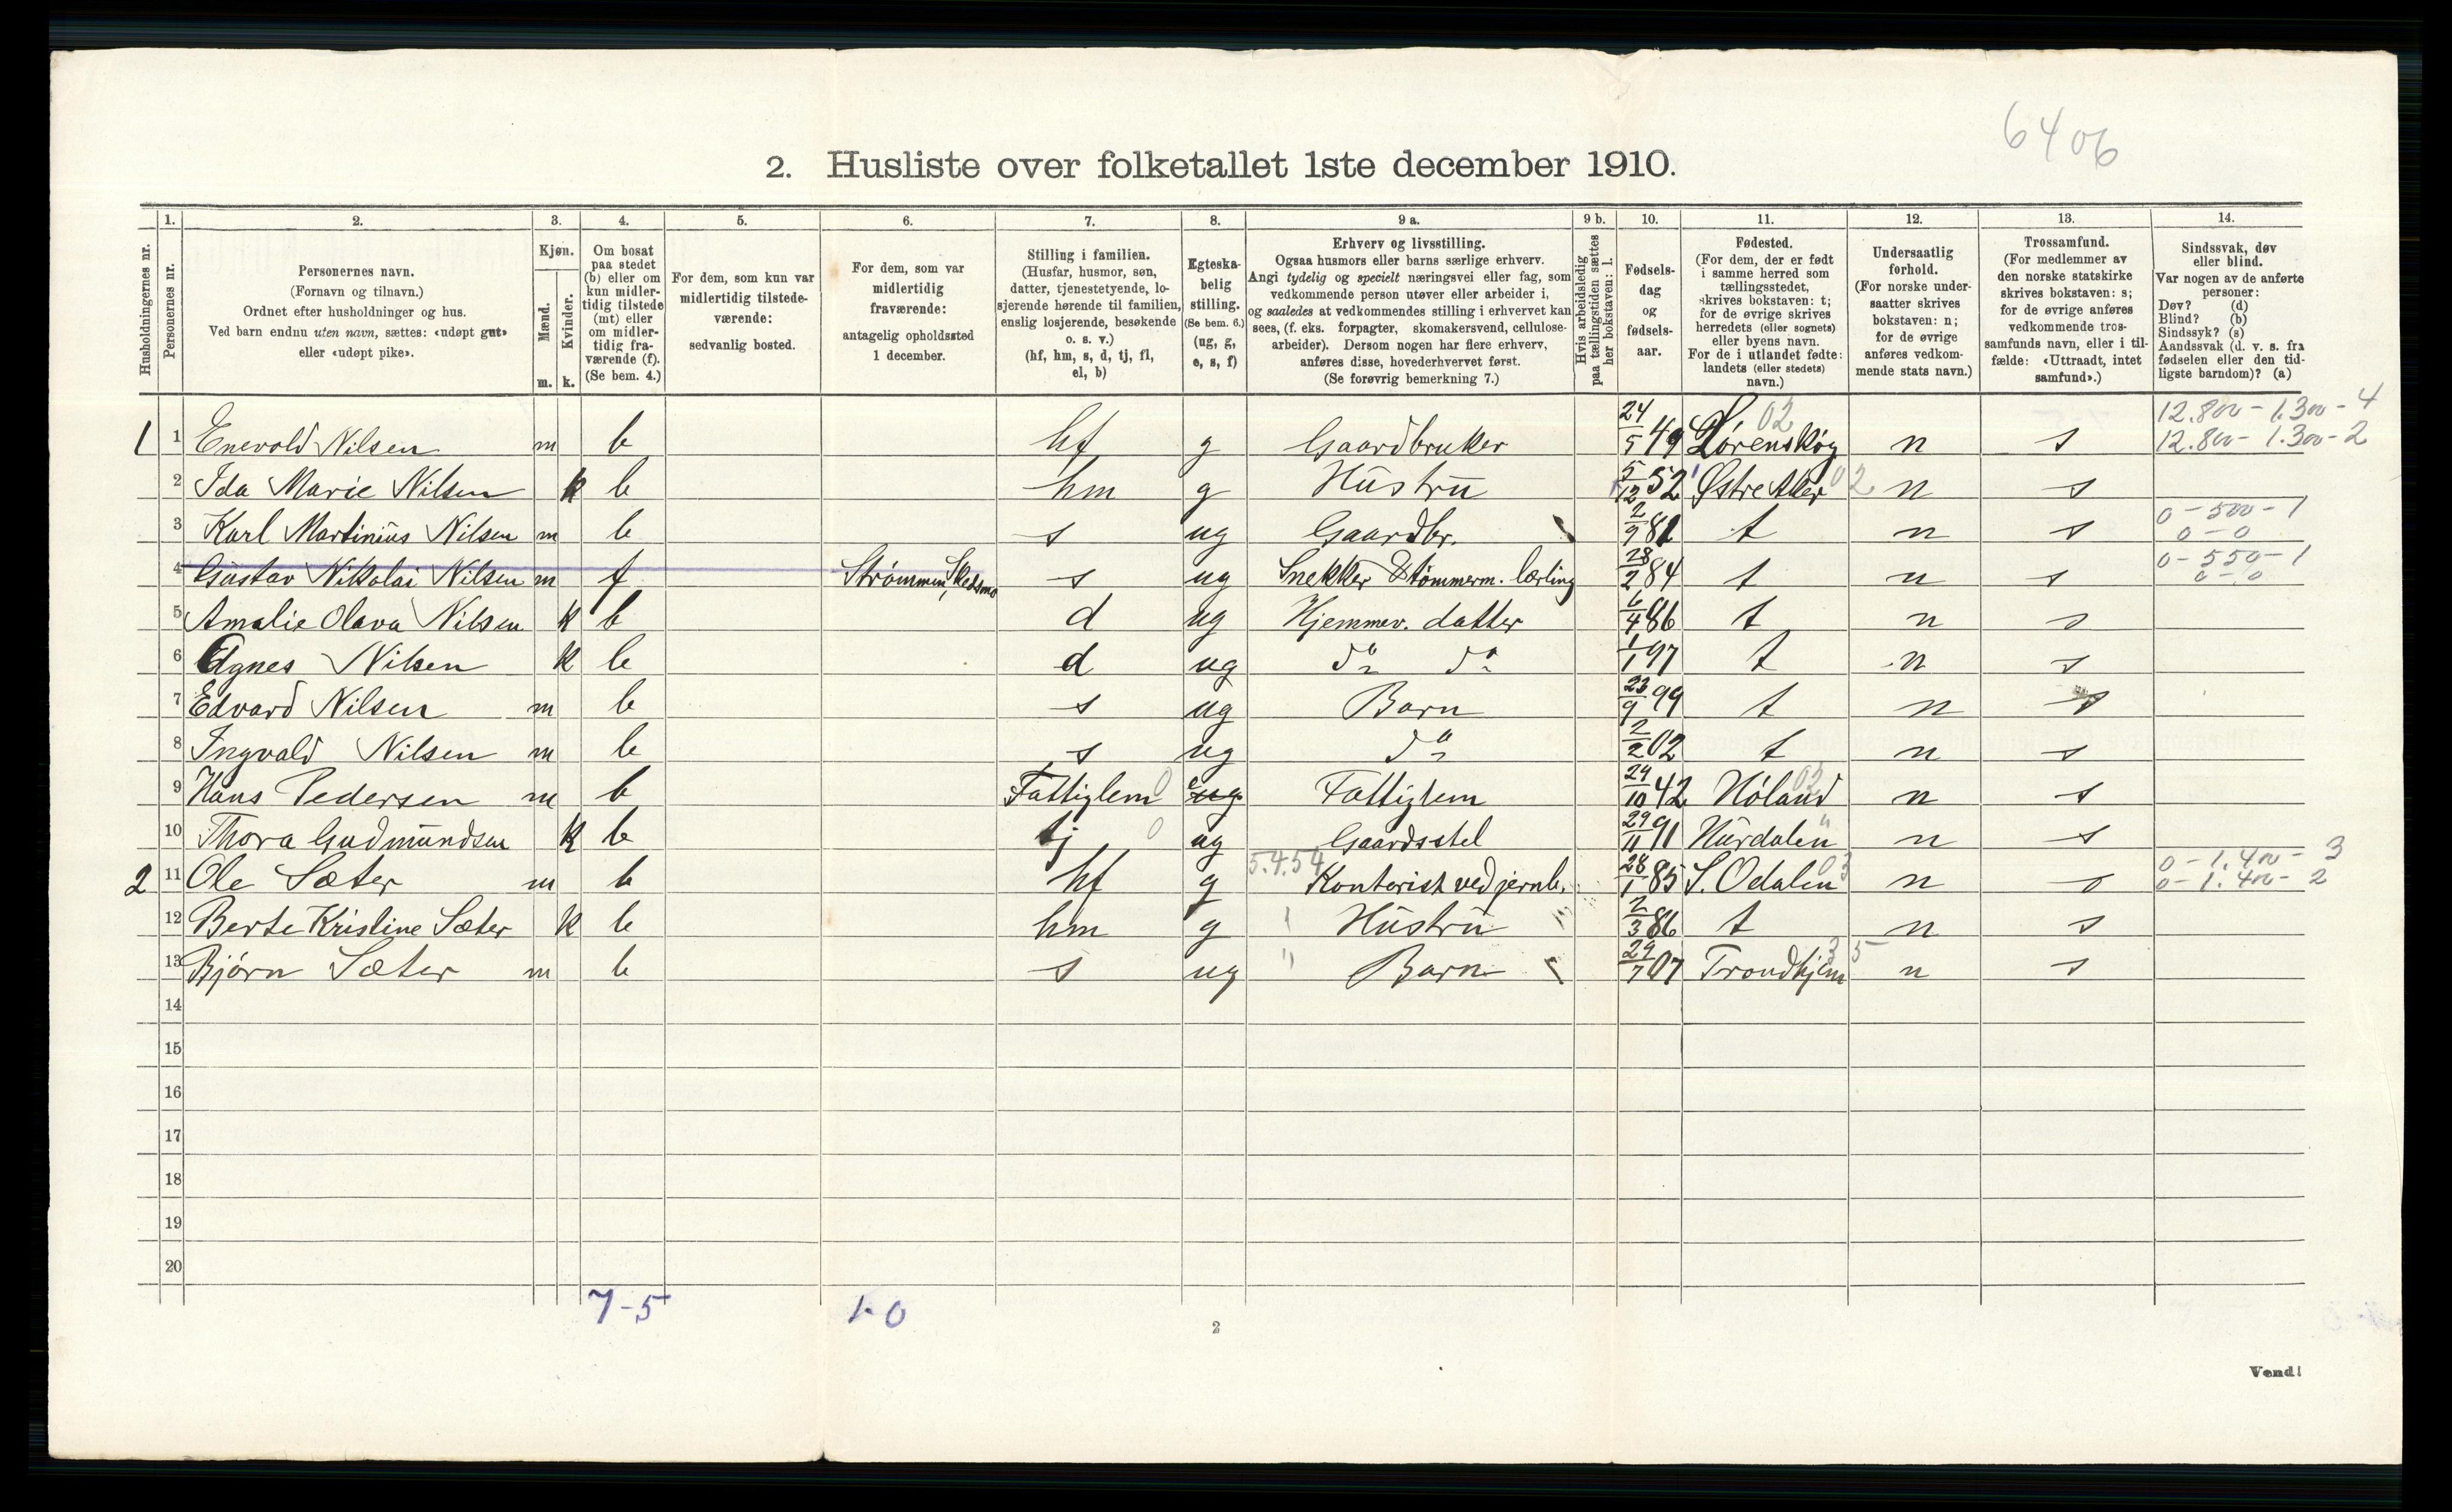 6406
2. Husliste over folketallet 1ste december 1910.
1. 2. 3. 4. 5. 6. 7. 8. 9 a. 9 b. 10. 11. 12. 13. 14.
Husholdningernes nr.
Personernes nr.
Personernes navn.
(Fornavn og tilnavn.)
Ordnet efter husholdninger og hus.
Ved barn endnu uten navn, sættes: «udøpt gut»
eller «udøpt pike».
Kjøn.
Mænd.
Kvinder.
m. k.
Om bosat
paa stedet
(b) eller om
kun midler-
tidig tilstede
(mt) eller
om midler-
tidig fra-
værende (f).
(Se bem. 4.)
For dem, som kun var
midlertidig tilstede-
værende:
sedvanlig bosted.
For dem, som var
midlertidig
fraværende:
antagelig opholdssted
1 december.
Stilling i familien.
(Husfar, husmor, søn,
datter, tjenestetyende, lo-
sjerende hørende til familien,
enslig losjerende, besøkende
o. s. v.)
(hf, hm, s, d, tj, fl,
el, b)
Egteska-
belig
stilling.
(Se bem. 6.)
(ug, g,
e, s, f)
Erhverv og livsstilling.
Ogsaa husmors eller barns særlige erhverv.
Angi tydelig og specielt næringsvei eller fag, som
vedkommende person utøver eller arbeider i,
og saaledes at vedkommendes stilling i erhvervet kan
sees, (f. eks. forpagter, skomakersvend, cellulose-
arbeider). Dersom nogen har flere erhverv,
anføres disse, hovederhvervet først.
(Se forøvrig bemerkning 7.)
Hvis arbeidsledig
paa tællingstiden sættes
her bokstaven: l.
Fødsels-
dag
og
fødsels-
aar.
Fødested.
(For dem, der er født
i samme herred som
tællingsstedet,
skrives bokstaven: t;
for de øvrige skrives
herredets (eller sognets)
eller byens navn.
For de i utlandet fødte:
landets (eller stedets)
navn.)
Undersaatlig
forhold.
(For norske under-
saatter skrives
bokstaven: n;
for de øvrige
anføres vedkom-
mende stats navn.)
Trossamfund.
(For medlemmer av
den norske statskirke
skrives bokstaven: s;
for de øvrige anføres
vedkommende tros-
samfunds navn, eller i til-
fælde: «Uttraadt, intet
samfund».)
Sindssvak, døv
eller blind.
Var nogen av de anførte
personer:
Døv? (d)
Blind? (b)
Sindssyk? (s)
Aandssvak (d. v. s. fra
fødselen eller den tid-
ligste barndom)? (a)
02 12.800 - 1.300 - 4
1 1 Enevold Nilsen m b hf g Gaardbruker 24/5 49 Lørenskog n s 12.800 - 1.300 - 2
2 Ida Marie Nilsen k b hm g Hustru 5/12 52 Østre Aker 02 n s
0 - 500 - 1
3 Karl Martinius Nilsen m b s ug Gaardbr. 2/9 81 t n s 0 - 0
0 - 550 - 1
4 Gustav Nikolai Nilsen m f Strømmen, Skedsmo s ug Snekker & tømmerm. lærling 28/2 84 t n s 0 - 0
5 Amalie Olava Nilsen k b d ug Hjemmev. datter 6/4 86 t n s
6 Agnes Nilsen k b d ug do do 1/1 97 t n s
7 Edvard Nilsen m b s ug Barn 23/9 99 t n s
8 Ingvald Nilsen m b s ug do 2/2 02 t n s
9 Hans Pedersen m b Fattiglem 0 e ug Fattiglem 24/10 42 Høland 02 n s
10 Thora Gudmundsen k b tj 0 ug Gaardsstel 29/11 91 Hurdalen " n s
5.4.54 0 - 1.400 - 3
2 11 Ole Sæter m b hf g Kontorist ved jernb. 28/1 85 S. Odalen 03 n s 0 - 1.400 - 2
12 Berte Kristine Sæter k b hm g Hustru 2/3 86 t n s
13 Bjørn Sæter m b s ug " Barn 29/7 07 Trondhjem 35 n s
14
15
16
17
18
19
20
7-5 1-0
2
Vend!